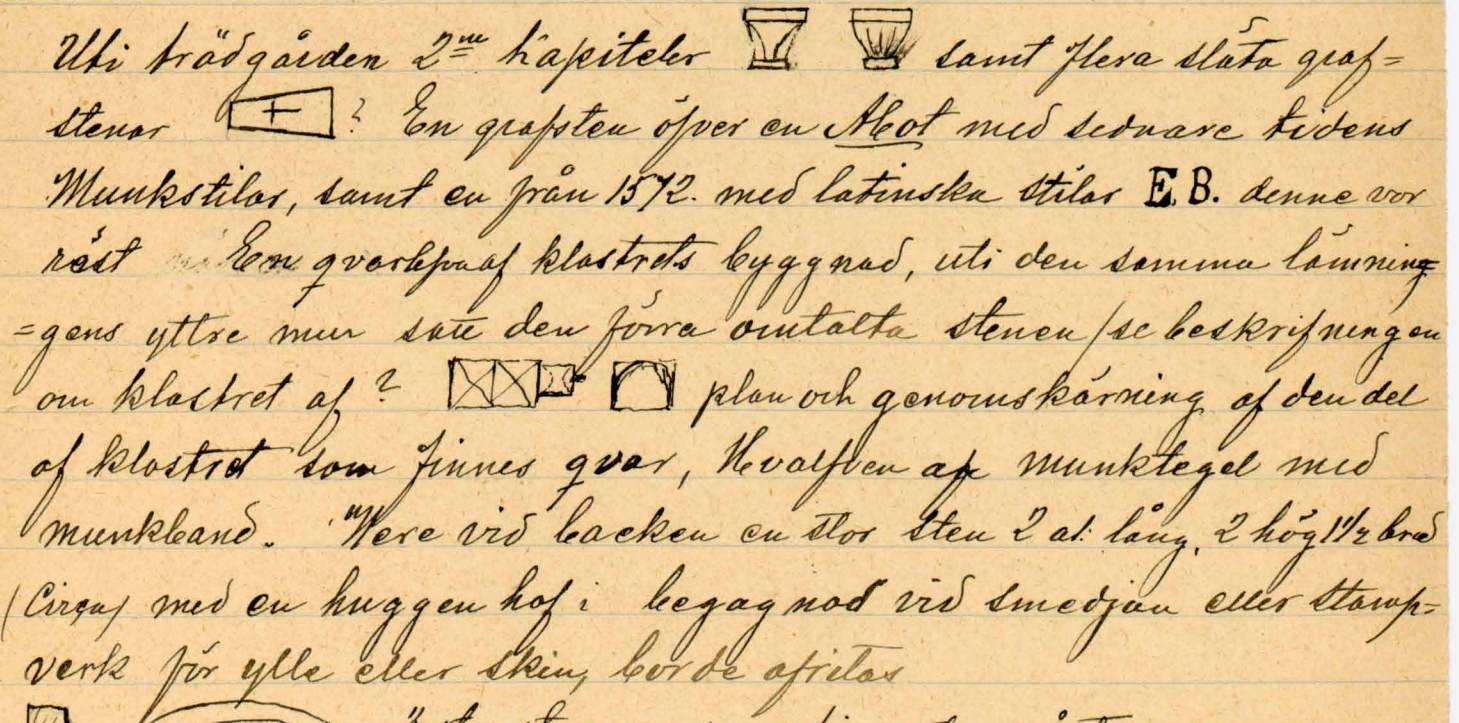 Uti trädgården 2ne Kapiteler samt flera släta graf=
stenar ? En grafsten öfver en Abot med sednare tidens
Munkstilar, samt en från 1572. med latinska stilar E.B. denne var
rest En qvarlefva af klostrets byggnad, uti den samma lämnin=
=gens yttre mur satt den förra omtalta stenen /se beskrifningen
om klostret af ? plan och genomskärning af den del
af klostret som finnes qvar, Hvalfven af munktegel med
munkband. Nere vid backen en stor sten 2 al: lång, 2 hög 1 1/2 bred
(Cirça) med en huggen hof i begagnad vid smedjan eller stamp=
verk för ylle eller skin, borde afritas